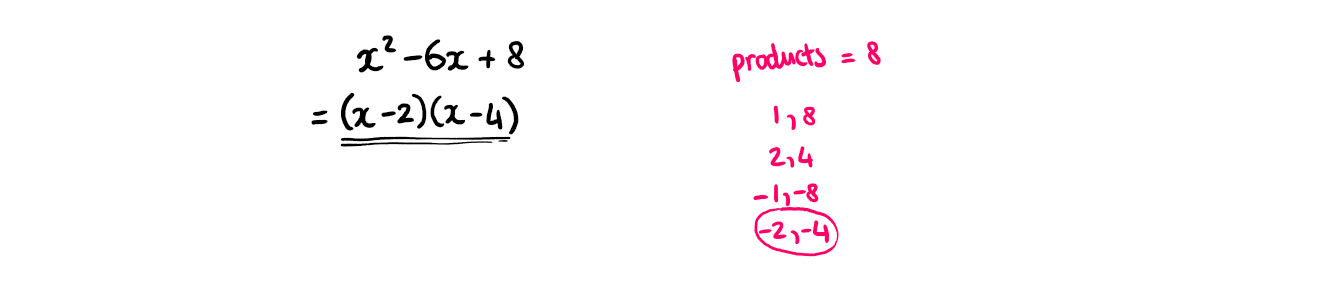 x² - 6x + 8
= (x - 2)(x - 4)
products = 8
1, 8
2, 4
-1, -8
-2, -4